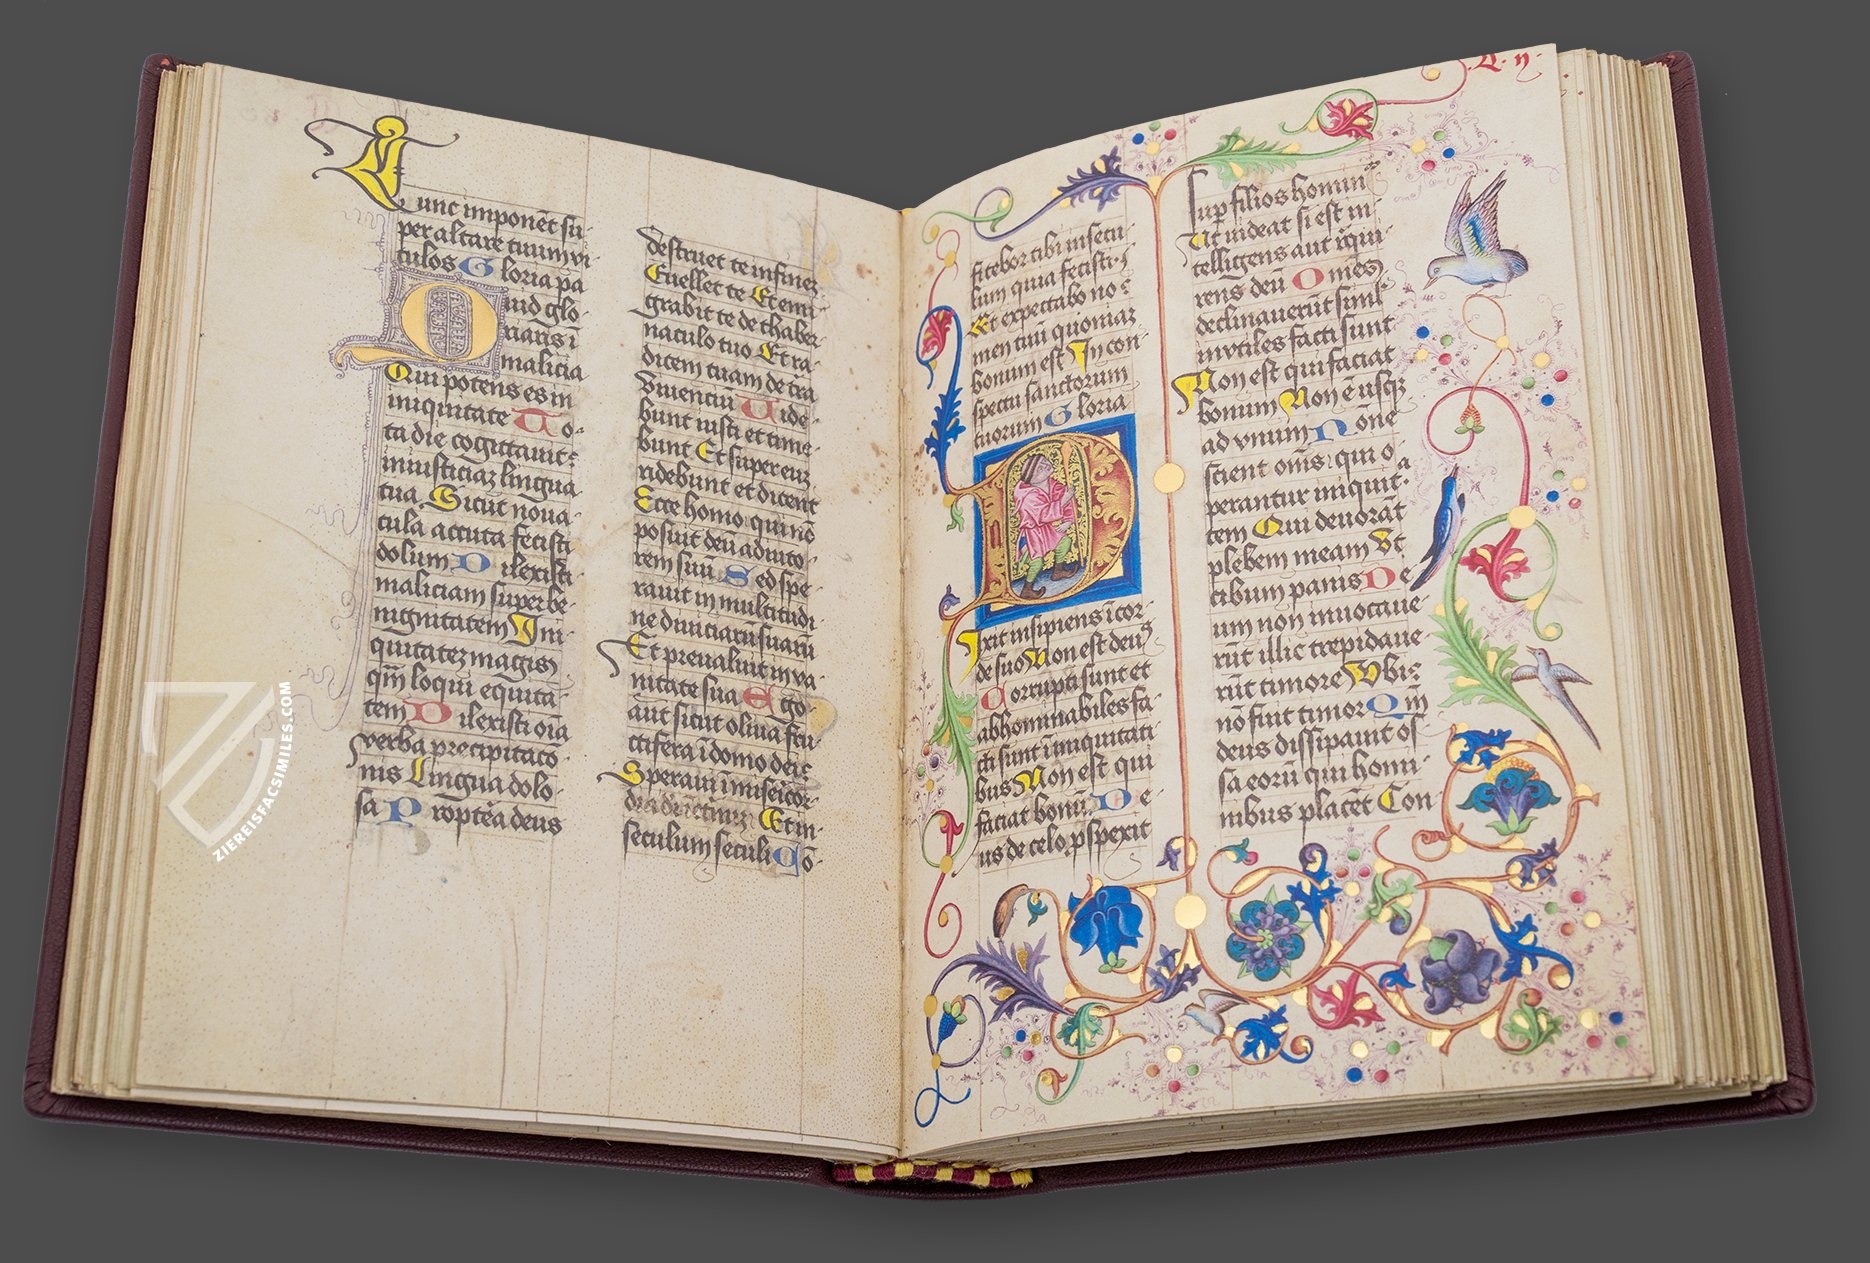 Tunc imponēt su-
per altare tuum vi-
tulos Gloria pa
Quid glo-
riaris ī
malicia
Qui potens es in
iniquitate To-
ta die cogitauit
iniusticiaȝ lingua
tua Sicut noua-
cula accuta fecisti
dolum Dilexisti
maliciam super be-
nignitatem Ini-
quitateȝ magis
qm̄ loqui equita-
tem Dilexisti oīa
verba precipitacō-
nis Lingua dolo-
sa Propt̄ea deus
destruet te in fineȝ
Euellet te Et emi-
grabit te de thaber-
naculo tuo Et ra-
dicem tuam de t̄ra
viuenciū Vide
bunt iusti et time-
bunt Et super euȝ
ridebunt et dicent
Ecce homo qui nō
posuit deū adiuto-
rem suū Sed spe-
rauit in multitudi
ne diuiciarū suarū
Et preualuit in va-
nitate sua Ego
aut sicut oliua fru-
ctifera ī domo dei
Speraui ī misericor-
dia dei Et in
seculum seculi Cō-
fitebor tibi in secu-
lum quia fecisti
Et expectabo no
men tuū quoniaȝ
bonum est In con-
spectu sanctorum
tuorum Gloria
Dixit insipiens ī cor-
de suo Non est deus
Corrupti sunt et
abhominabiles fa-
cti sunt ī iniquitati
bus Non est qui
faciat bonū De-
us de celo pspexit
sup filios homin
Ut uideat si est in-
telligens aut rēqui-
rens deū Omēs
declinauerūt simł
inutiles facti sunt
Non est qui faciat
bonum Non ē usqȝ
ad vnum Nonē
scient oms qui o-
perantur iniquit-
tem Qui deuorāt
plebem meam Vt
cibum panis De-
um non inuocaue-
rūt illic trepidaue
rūt timore Vbi
nō fuit timor Qm̄
deus dissipauit os-
sa eorū qui homi-
nibus placēt Con-
63
ZIEREISFACSIMILES.COM